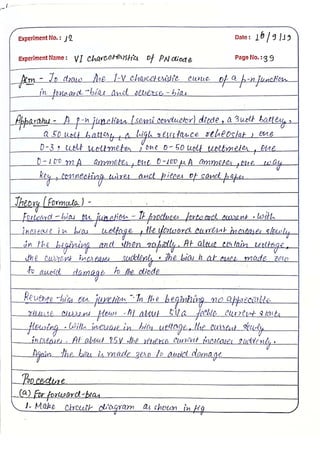 Experiment No.: 12 Date: 16/9/19
Experiment Name: VI Charcteristics of PN diode Page No.: 39
Aim - To draw the I-V characteristic curve of a p-n junction
in forward-bias and reverse-bias
Apparatus - A p-n junction (semi conductor) diode, a 3 volt battery,
a 50 volt battery, a high resistance rheostat, one
0-3 volt voltmeter, one 0-50 volt voltmeter, one
0-100 mA ammeter, one 0-100 μA ammeter, one way
key, connecting wires and pieces of sand paper
Theory (Formula) -
Forward-bias on junction - It produces forward current. With
increase in bias voltage, the forward current increases slowly
in the begining and then rapidly. At about certain voltage,
the current increases suddenly. The bias is at once made zero
to avoid damage to the diode
Reverse-bias on junction - In the beginning no appreciable
reverse current flows. At about current starts
flowing. With increase in bias voltage, the current slowly
increases. At about 25V the reverse current increases suddenly.
Again the bias is made zero to avoid damage
Procedure
(a) For forward-bias
1. Make circuit diagram as shown in fig